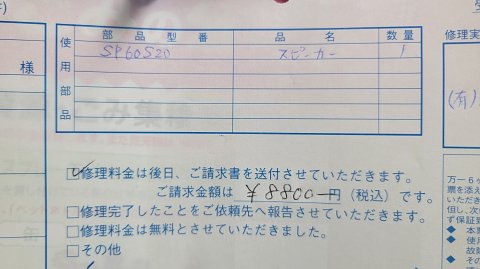 様
使用部品
部品型番 品名 数量
SP60S20 スピーカー 1
修理実
(有)
☑修理料金は後日、ご請求書を送付させていただきます。
ご請求金額は ¥8800-円 (税込) です。
□修理完了したことをご依頼先へ報告させていただきます。
□修理料金は無料とさせていただきました。
□その他
万一6ヶ
票を添え
いただき
但し、次
ず保証
◆ 本票
◆ 使用
故障
◆ その